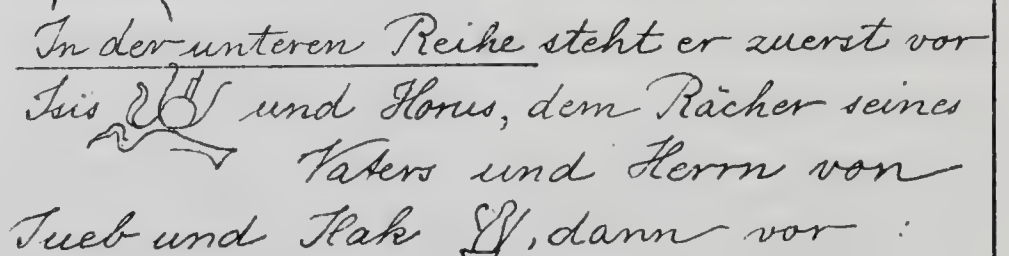 In der unteren Reihe steht er zuerst vor
Isis und Horus, dem Rächer seines
Vaters und Herrn von
und , dann vor :